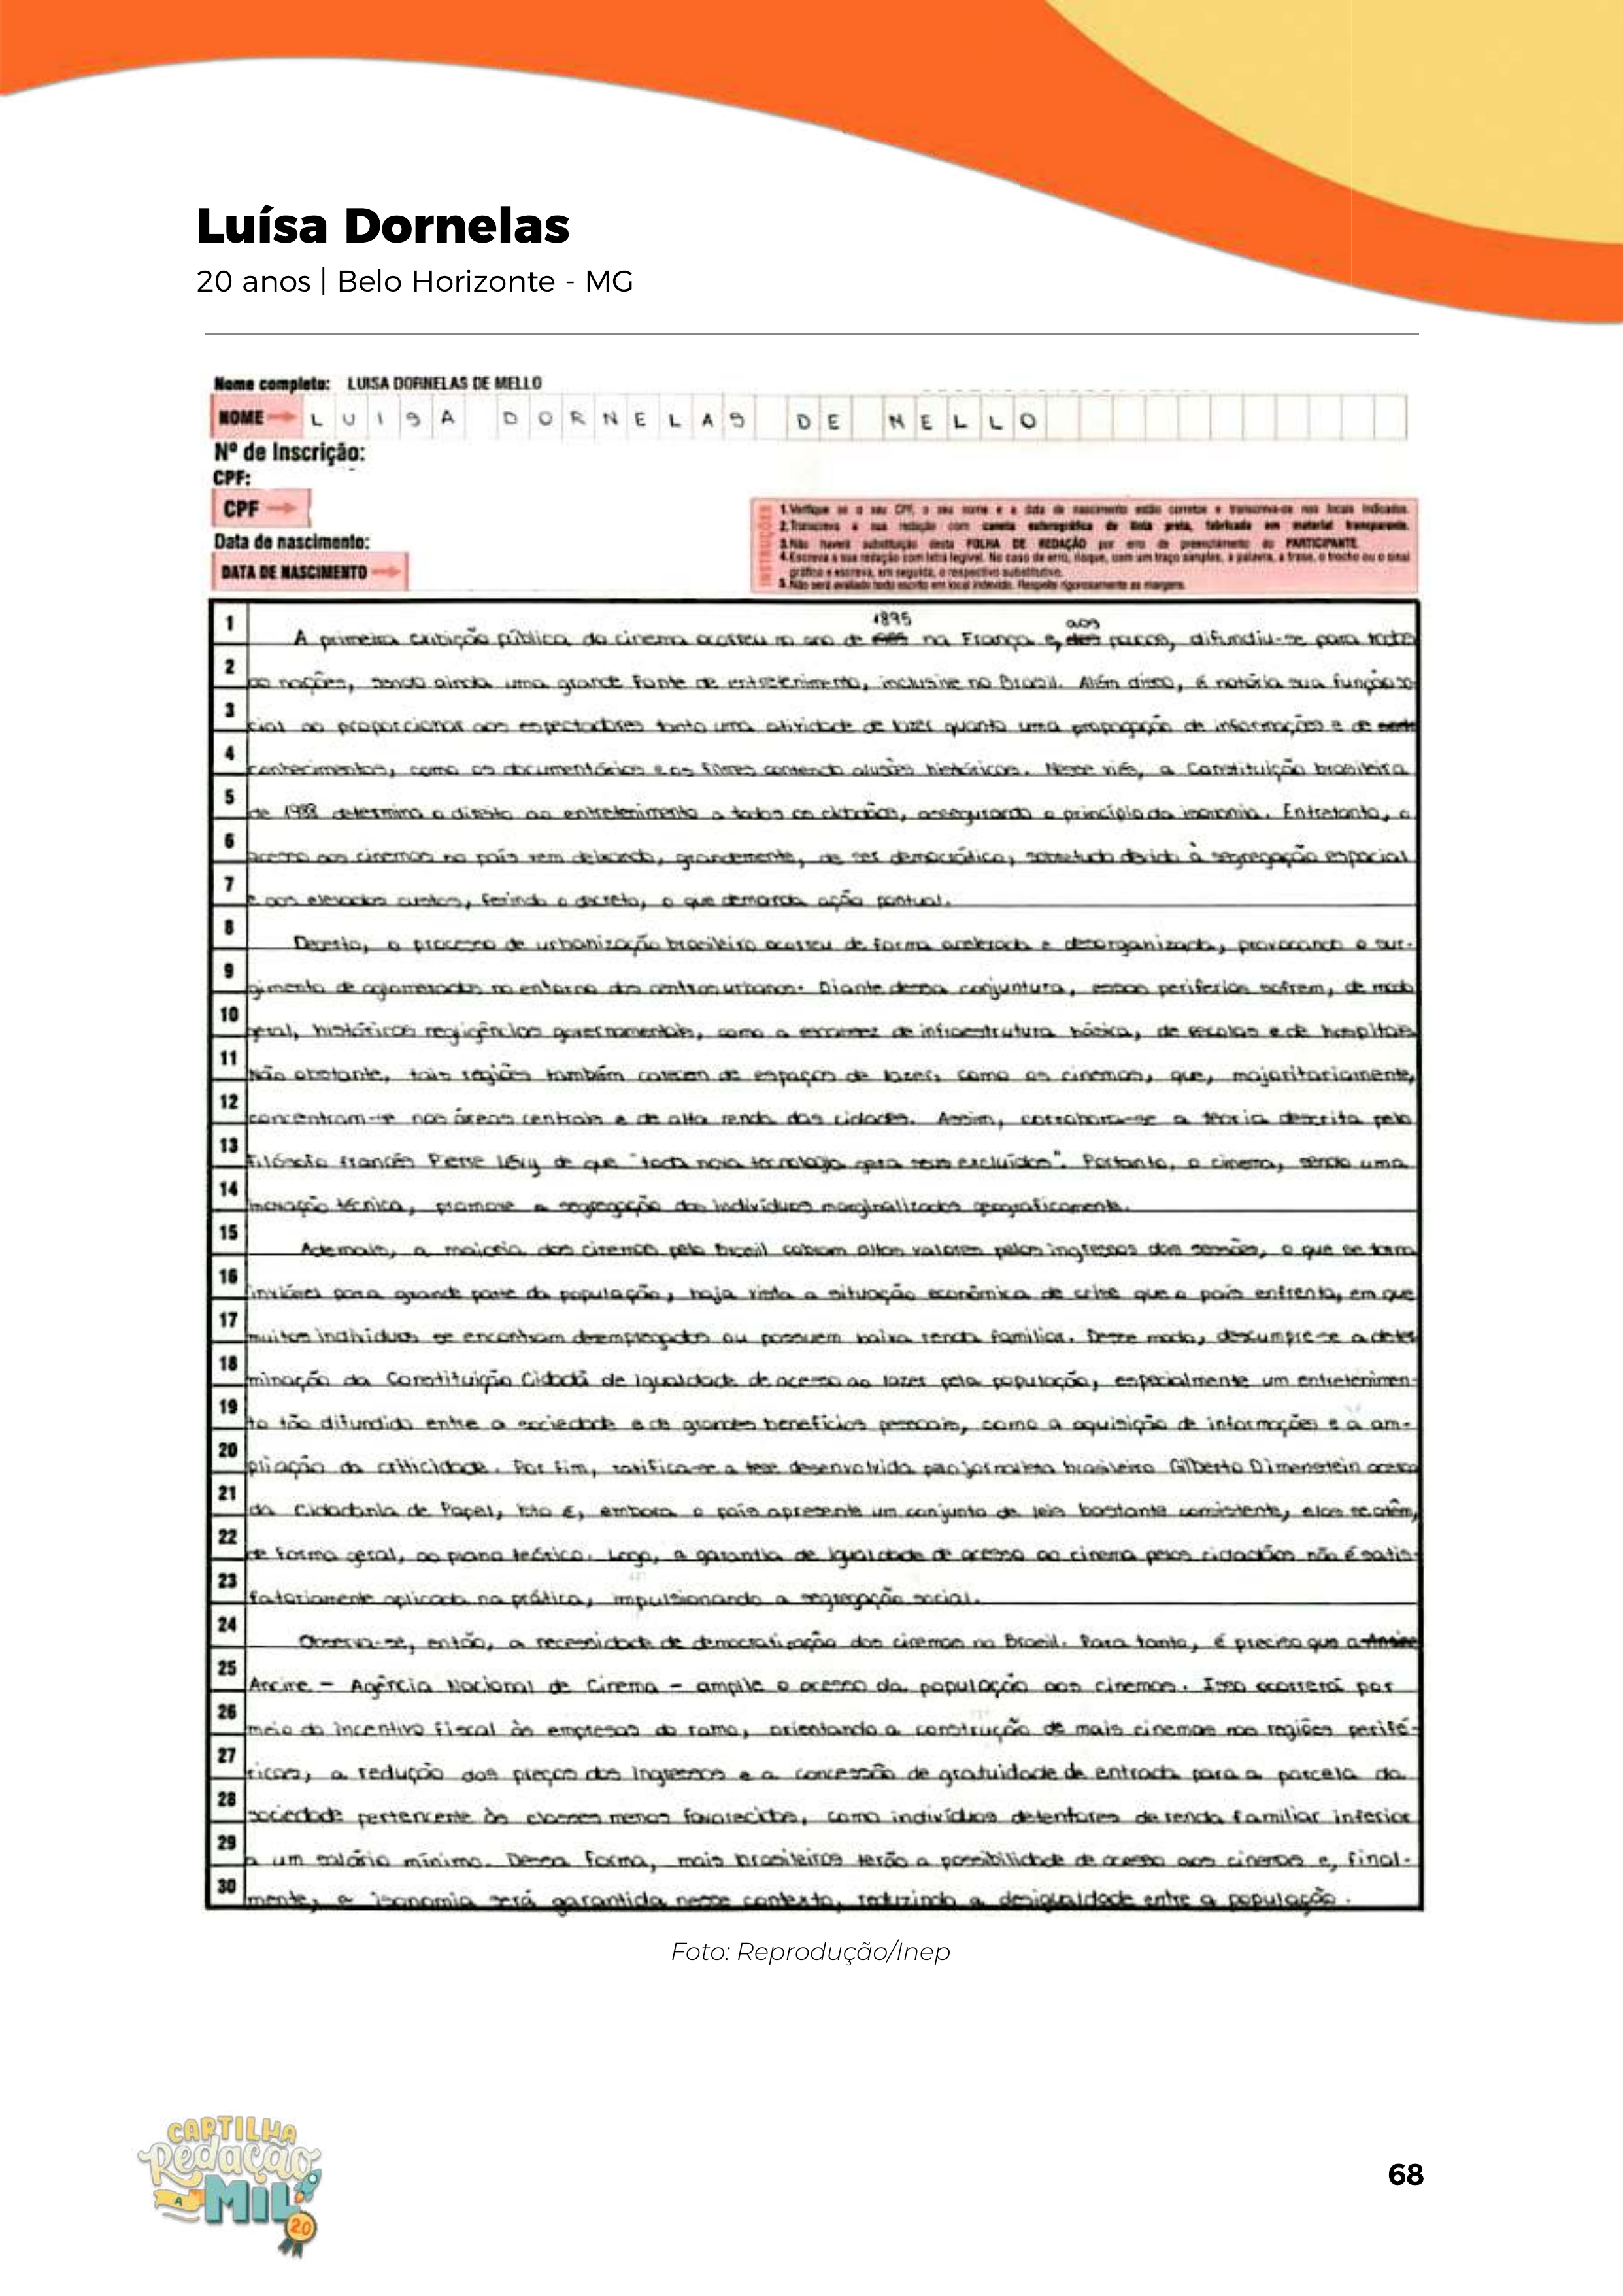 Luísa Dornelas
20 anos | Belo Horizonte - MG
Nome completo: LUISA DORNELAS DE MELLO
NOME LUISA DORNELAS DE MELLO
Nº de Inscrição:
CPF:
CPF
Data de nascimento:
DATA DE NASCIMENTO
INSTRUÇÕES
1. Verifique se o seu CPF, o seu nome e a data de nascimento estão corretos e transcreva-os nos locais indicados.
2. Transcreva a sua redação com caneta esferográfica de tinta preta, fabricada em material transparente.
3. Não haverá substituição desta FOLHA DE REDAÇÃO por erro de preenchimento do PARTICIPANTE.
4. Escreva a sua redação com letra legível. No caso de erro, risque, com um traço simples, a palavra, a frase, o trecho ou o sinal
gráfico e escreva, em seguida, o respectivo substitutivo.
5. Não será avaliado texto escrito em local indevido. Respeite rigorosamente as margens.
1 A primeira exibição pública do cinema ocorreu no ano de 1895 na França e, aos poucos, difundiu-se para todas
2 as nações, sendo ainda uma grande fonte de entretenimento, inclusive no Brasil. Além disso, é notória sua função so-
3 cial ao proporcionar aos espectadores tanto uma atividade de lazer quanto uma propagação de informações e de
4 conhecimentos, como os documentários e os filmes contendo alusões históricas. Nesse viés, a Constituição brasileira
5 de 1988 determina o direito ao entretenimento a todos os cidadãos, assegurando o princípio da isonomia. Entretanto, o
6 acesso aos cinemas no país vem deixando, grandemente, de ser democrático, sobretudo devido à segregação espacial
7 e aos elevados custos, ferindo o decreto, o que demanda ação pontual.
8 Decerto, o processo de urbanização brasileiro ocorreu de forma acelerada e desorganizada, provocando o sur-
9 gimento de aglomerados no entorno dos centros urbanos. Diante dessa conjuntura, essas periferias sofrem, de modo
10 geral, históricas negligências governamentais, como a escassez de infraestrutura básica, de escolas e de hospitais.
11 Não obstante, tais regiões também carecem de espaços de lazer, como os cinemas, que, majoritariamente,
12 concentram-se nas áreas centrais e de alta renda das cidades. Assim, corrobora-se a teoria descrita pelo
13 filósofo francês Pierre Lévy de que "toda nova tecnologia gera seus excluídos". Portanto, o cinema, sendo uma
14 inovação técnica, promove a segregação dos indivíduos marginalizados geograficamente.
15 Ademais, a maioria dos cinemas pelo Brasil cobram altos valores pelos ingressos das sessões, o que se torna
16 inviável para grande parte da população, haja vista a situação econômica de crise que o país enfrenta, em que
17 muitos indivíduos se encontram desempregados ou possuem baixa renda familiar. Desse modo, descumpre-se a deter
18 minação da Constituição Cidadã de igualdade de acesso ao lazer pela população, especialmente um entretenimen-
19 to tão difundido entre a sociedade e de grandes benefícios pessoais, como a aquisição de informações e a am-
20 pliação da criticidade. Por fim, ratifica-se a tese desenvolvida pelo jornalista brasileiro Gilberto Dimenstein acerca
21 da Cidadania de Papel, isto é, embora o país apresente um conjunto de leis bastante consistente, elas se atêm,
22 de forma geral, ao plano teórico. Logo, a garantia de igualdade de acesso ao cinema pelos cidadãos não é satis-
23 fatoriamente aplicada na prática, impulsionando a segregação social.
24 Observa-se, então, a necessidade de democratização dos cinemas no Brasil. Para tanto, é preciso que a
25 Ancine - Agência Nacional de Cinema - amplie o acesso da população aos cinemas. Isso ocorrerá por
26 meio do incentivo fiscal às empresas do ramo, orientando a construção de mais cinemas nas regiões perifé-
27 ricas, a redução dos preços dos ingressos e a concessão de gratuidade de entrada para a parcela da
28 sociedade pertencente às classes menos favorecidas, como indivíduos detentores de renda familiar inferior
29 a um salário mínimo. Dessa forma, mais brasileiros terão a possibilidade de acesso aos cinemas e, final-
30 mente, a isonomia será garantida nesse contexto, reduzindo a desigualdade entre a população.
Foto: Reprodução/Inep
CARTILHA
Redação
A
MIL
20
68